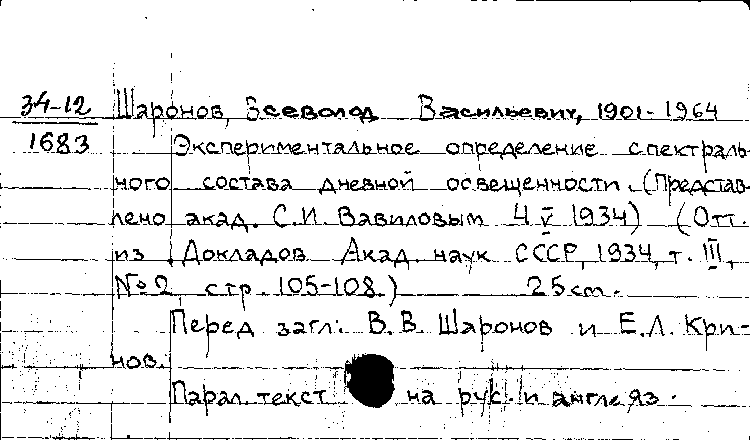 34-12 Шаронов, Всеволод Васильевич, 1901-1964
1683 Экспериментальное определение спектраль-
ного состава дневной освещенности. (Представ-
лено акад. С.И. Вавиловым 4 V 1934) (Отт.
из Докладов Акад. наук СССР, 1934, т. III,
№2, стр. 105-108.) 25 см.
Перед загл: В.В. Шаронов и Е.Л. Кри-
нов.
Парал. текст на рус. и англ. яз.